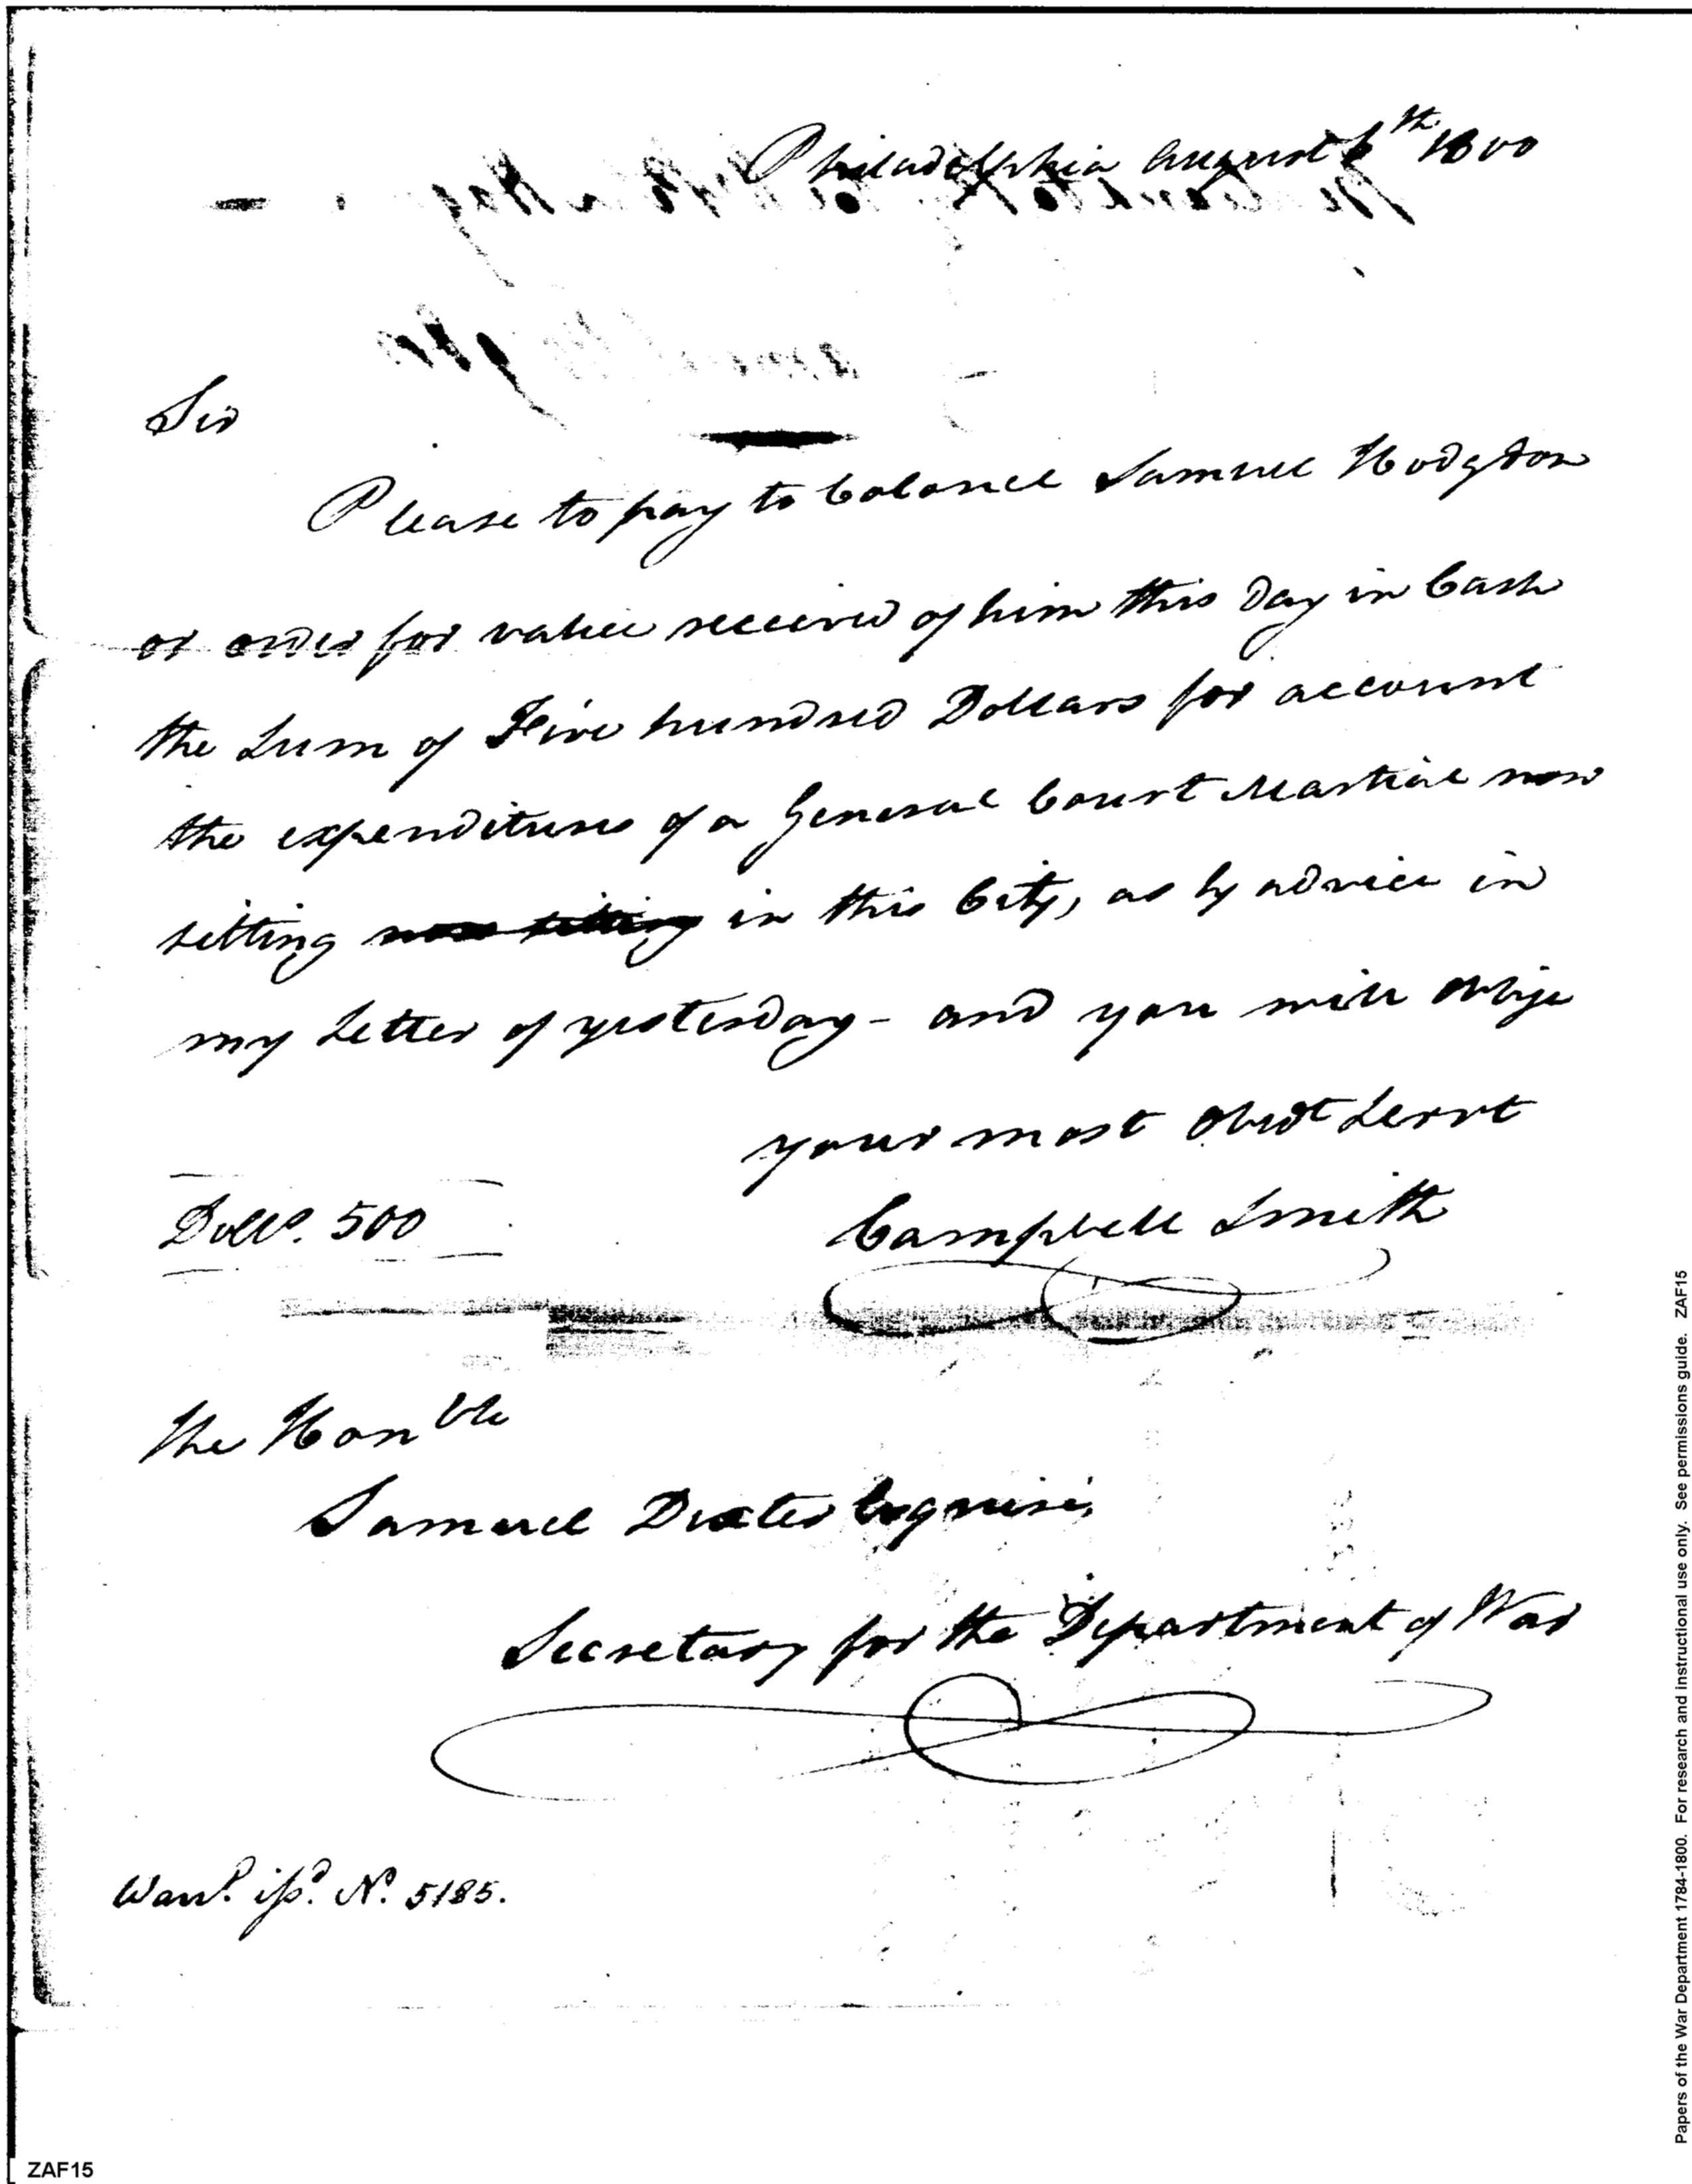 Philadelphia August 6th 1800
Sir
Please to pay to Colonel Samuel Hodgdon
or order for value received of him this Day in Cash
the Sum of Five hundred Dollars for account
the expenditures of a General Court Martial now
sitting now sitting in this City, as by advice in
my Letter of yesterday - and you will oblige
your most Obedt Servt
Dolls. 500
Campbell Smith
The Honble
Samuel Dexter Esquire,
Secretary for the Department of War
Warrt. issd. No. 5185.
ZAF15
Papers of the War Department 1784-1800. For research and instructional use only. See permissions guide. ZAF15